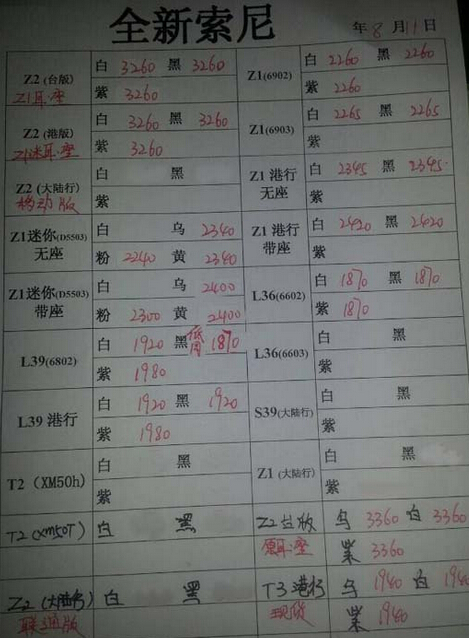 全新索尼 年8月11日
Z2(台版) 白 3260 黑 3260 Z1(6902) 白 2260 黑 2260
Z1耳座 紫 3260 紫 2260
Z2(港版) 白 3260 黑 3260 Z1(6903) 白 2265 黑 2265
Z1迷耳座 紫 3260 紫
Z2(大陆行) 白 黑 Z1 港行 白 2345 黑 2345
移动版 紫 无座 紫
Z1迷你(D5503) 白 乌 2340 Z1 港行 白 2420 黑 2420
无座 粉 2240 黄 2340 带座 紫
Z1迷你(D5503) 白 乌 2400 L36(6602) 白 1870 黑 1870
带座 粉 2300 黄 2400 紫 1870
L39(6802) 白 1920 黑 1870 L36(6603) 白 黑
紫 1980 紫
L39 港行 白 1920 黑 1920 S39(大陆行) 白 黑
紫 1980 紫
T2(XM50h) 白 黑 Z1(大陆行) 白 黑
紫 紫
T2(XM50T) 白 黑 Z2台版 乌 3360 白 3360
耳座 紫 3360
Z2(大陆行) 白 黑 T3港行 乌 1940 白 1940
联通版 现货 紫 1940